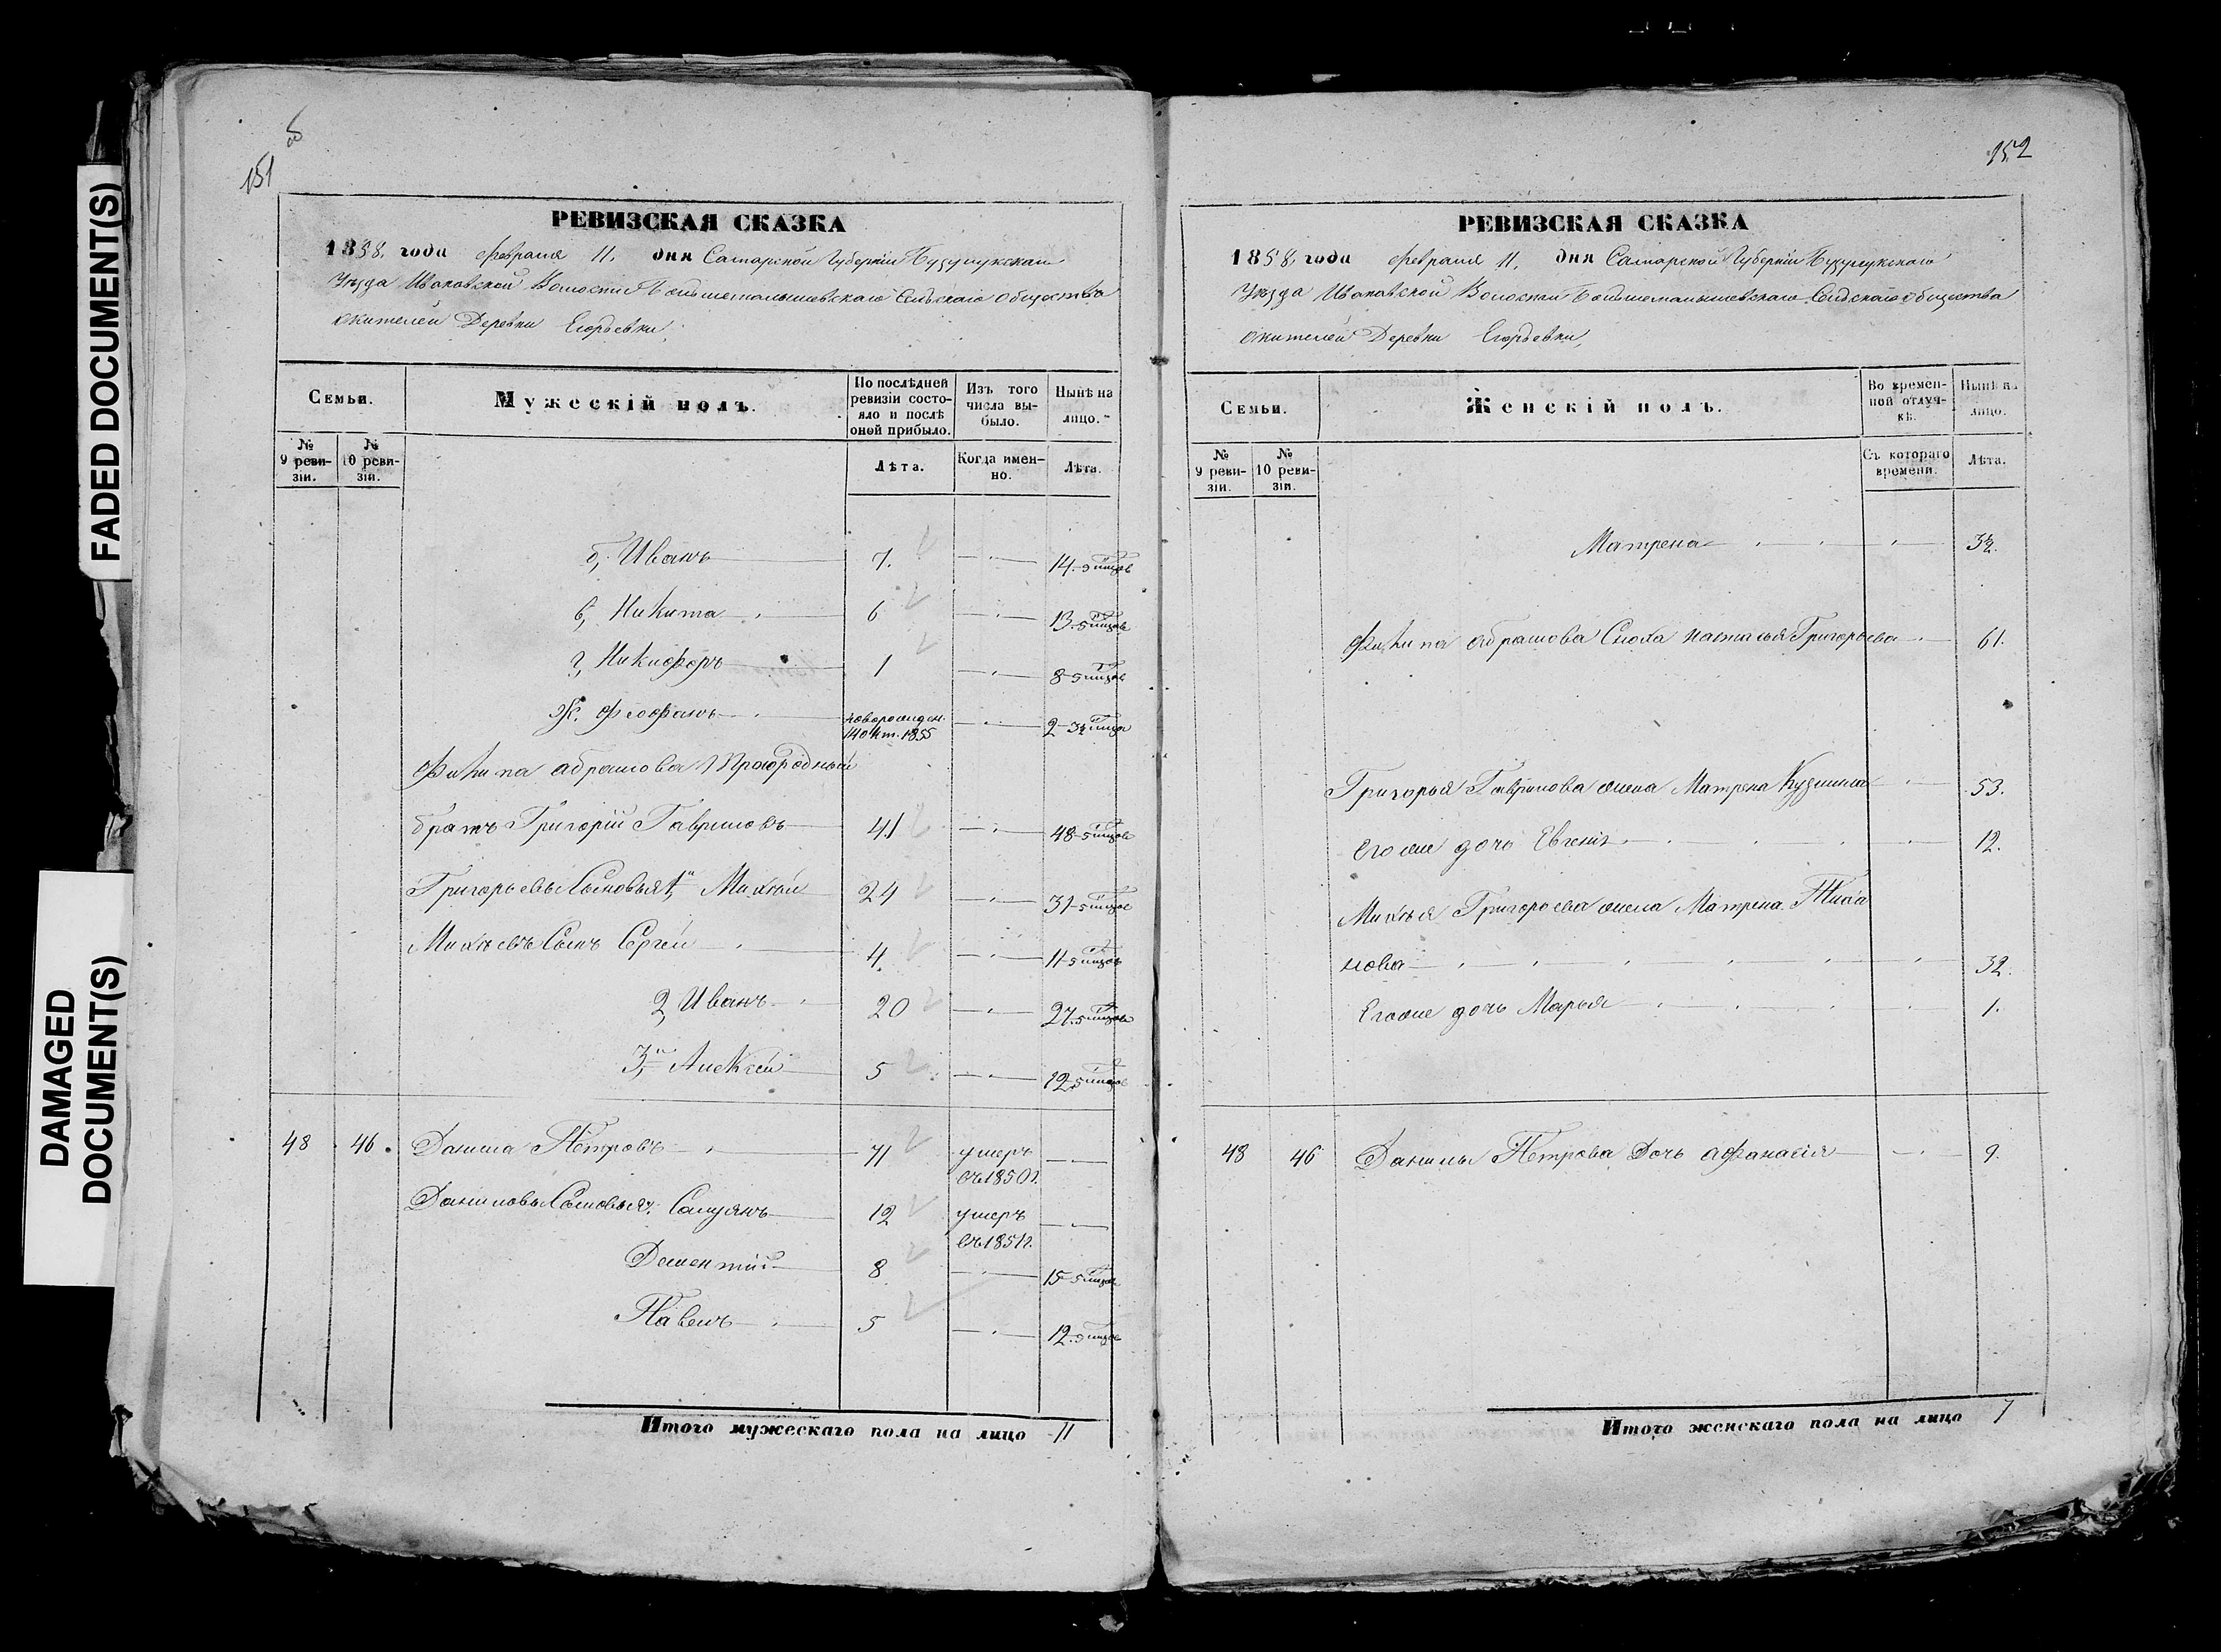 FADED DOCUMENT(S)
DAMAGED
DOCUMENT(S)
151
об
РЕВИЗСКАЯ СКАЗКА
1858 года февраля 11. дня Самарской Губерніи Бузулукскаго
Уѣзда Ивановской Волости Большемалышевскаго Сельскаго общества
жителей Деревни Егорьевки,
Семьи.
Мужескій полъ.
По послѣдней ревизіи состояло и послѣ оной прибыло.
Изъ того числа выбыло.
Нынѣ на лицо.
№ 9 ревизіи.
№ 10 ревизіи.
Лѣта.
Когда именно.
Лѣта.
б, Иванъ 7. 14
в, Никита 6 13
г, Никифоръ 1 8
Ж. Феофанъ новорожден. 14 Окт. 1855 2
Филипа абрамова
братъ Григорій Гавриловъ 41 48
Григорьевы Сыновья 1, Михѣй 24 31
Михѣевъ Сынъ Сергей 4. 11
2, Иванъ 20 27
3, Алексѣй 5 12
48 46. Данила Петровъ 71 умеръ
въ 1850 г.
Даниловы Сыновья: Самуянъ 12 умеръ
въ 1851 г.
Дементій 8 15
Павелъ 5 12
Итого мужескаго пола на лицо 11
152
РЕВИЗСКАЯ СКАЗКА
1858 года февраля 11. дня Самарской Губерніи Бузулукскаго
Уѣзда Ивановской Волости Большемалышевскаго Сельскаго общества
жителей Деревни Егорьевки,
Семьи.
Женскій полъ.
Во временной отлучкѣ.
Нынѣ на лицо.
№ 9 ревизіи.
№ 10 ревизіи.
Съ котораго времени.
Лѣта.
Матрена
Филипа абрамова Сноха Наталья Григорьева 61.
Григорья Гаврилова жена Матрена Кузмина 53.
Его же дочь Евгенія 12.
Михѣя Григорьева жена Матрена Тиха
нова 32.
Его же дочь Марья 1.
48 46 Данилы Петрова Дочь афанасія 9.
Итого женскаго пола на лицо 7